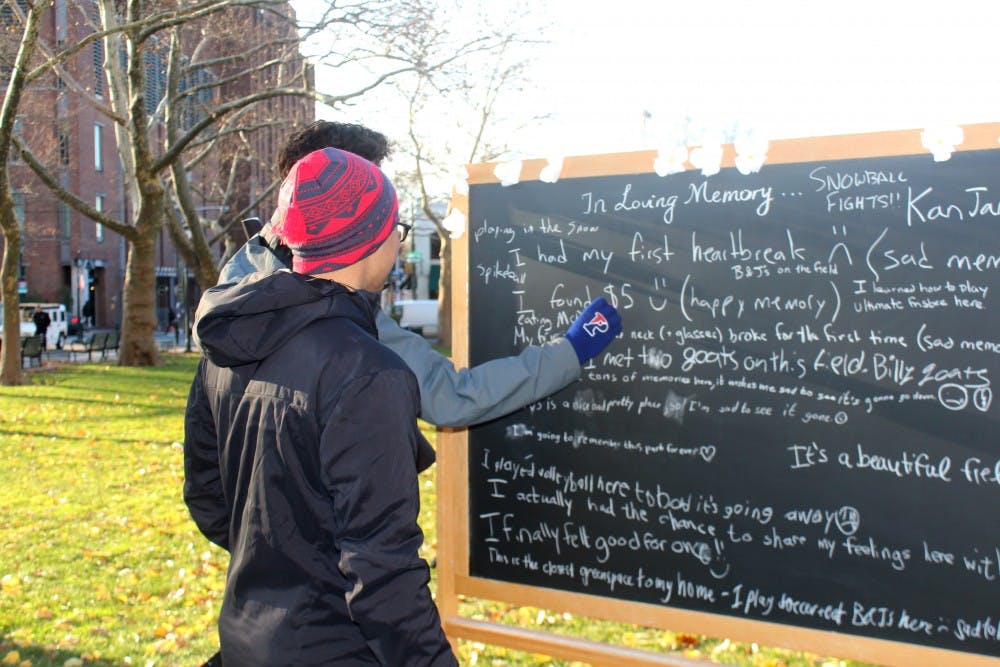 In Loving Memory...
SNOWBALL
FIGHTS!!
Kan Ja
playing in the snow
Spikeball
I had my first heartbreak :(
(sad mem
B&Js on the field
I found $5 :)
(happy memory)
I learned how to play
Ultimate frisbee here
eating
My
neck (+glasses) broke for the first time (sad memo
I met two goats on this field. Billy goats
tons of memories here, it makes me sad to see it's gonna go down
is a nice and pretty place so I'm sad to see it gone
I'm going to remember this park forever ♡
It's a beautiful fiel
I played volleyball here to bad it's going away
I actually had the chance to share my feelings here with
I finally felt good for once!!
This is the closest greenspace to my home - I play soccer at B&Js here - sad to
P